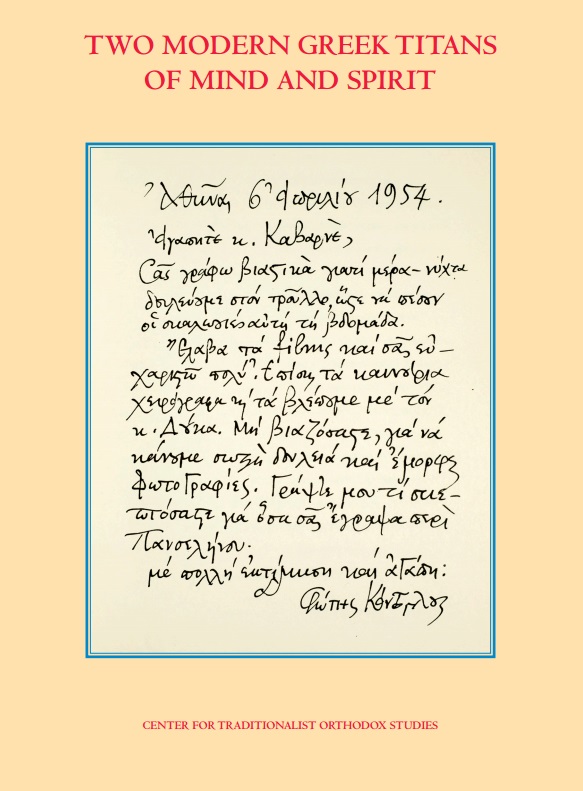 TWO MODERN GREEK TITANS
OF MIND AND SPIRIT
Ἀθῆναι 6 Ἀπριλίου 1954.
Ἀγαπητὲ κ. Καβαρνὲ,
Σᾶς γράφω βιαστικὰ γιατί μέρα-νύχτα
δουλεύουμε στόν τροῦλλο, ὥστε νά πέσουν
οἱ σκαλωσιὲς αὐτή τή βδομάδα.
Ἔλαβα τά films καί σᾶς εὐ-
χαριστῶ πολύ. Ἐπίσης τά καινούρια
χειρόγραφα κι' τά βλέπουμε μέ τόν
κ. Δούκα. Μή βιαζόσαστε, γιά νά
κάνουμε σωστὴ δουλειά καί ἔμορφες
φωτογραφίες. Γράψτε μου τί σκε-
πτόσαστε γιά ὅσα σᾶς ἔγραψα περὶ
Πανσελήνου.
μέ πολλή ἐκτίμηση καί ἀγάπη:
Φώτης Κόντογλους
CENTER FOR TRADITIONALIST ORTHODOX STUDIES